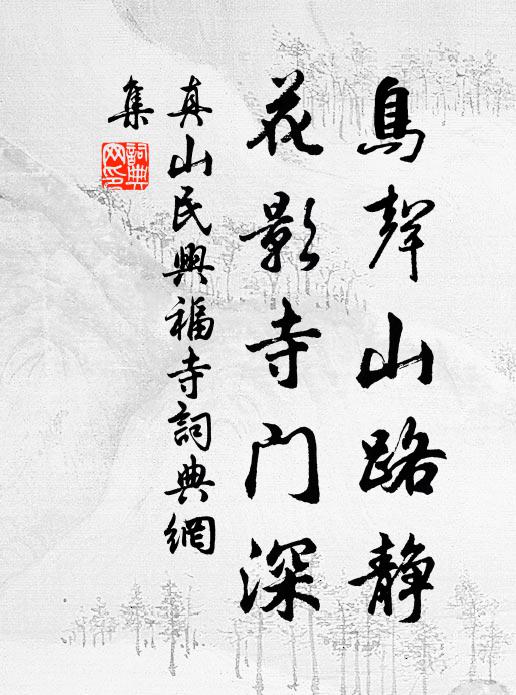 鳥聲山路静
花影寺门深
真山民興福寺詞典網
集
詞典网印